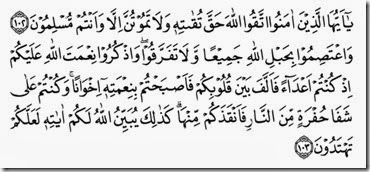 يٰٓاَيُّهَا الَّذِيْنَ اٰمَنُوا اتَّقُوا اللّٰهَ حَقَّ تُقٰىتِهٖ وَلَا تَمُوْتُنَّ اِلَّا وَاَنْتُمْ مُّسْلِمُوْنَ ﴿١٠٢﴾
وَاعْتَصِمُوْا بِحَبْلِ اللّٰهِ جَمِيْعًا وَّلَا تَفَرَّقُوْا وَاذْكُرُوْا نِعْمَتَ اللّٰهِ عَلَيْكُمْ
اِذْ كُنْتُمْ اَعْدَآءً فَاَلَّفَ بَيْنَ قُلُوْبِكُمْ فَاَصْبَحْتُمْ بِنِعْمَتِهٖٓ اِخْوَانًا وَكُنْتُمْ عَلٰى
شَفَا حُفْرَةٍ مِّنَ النَّارِ فَاَنْقَذَكُمْ مِّنْهَا كَذٰلِكَ يُبَيِّنُ اللّٰهُ لَكُمْ اٰيٰتِهٖ لَعَلَّكُمْ
تَهْتَدُوْنَ ﴿١٠٣﴾